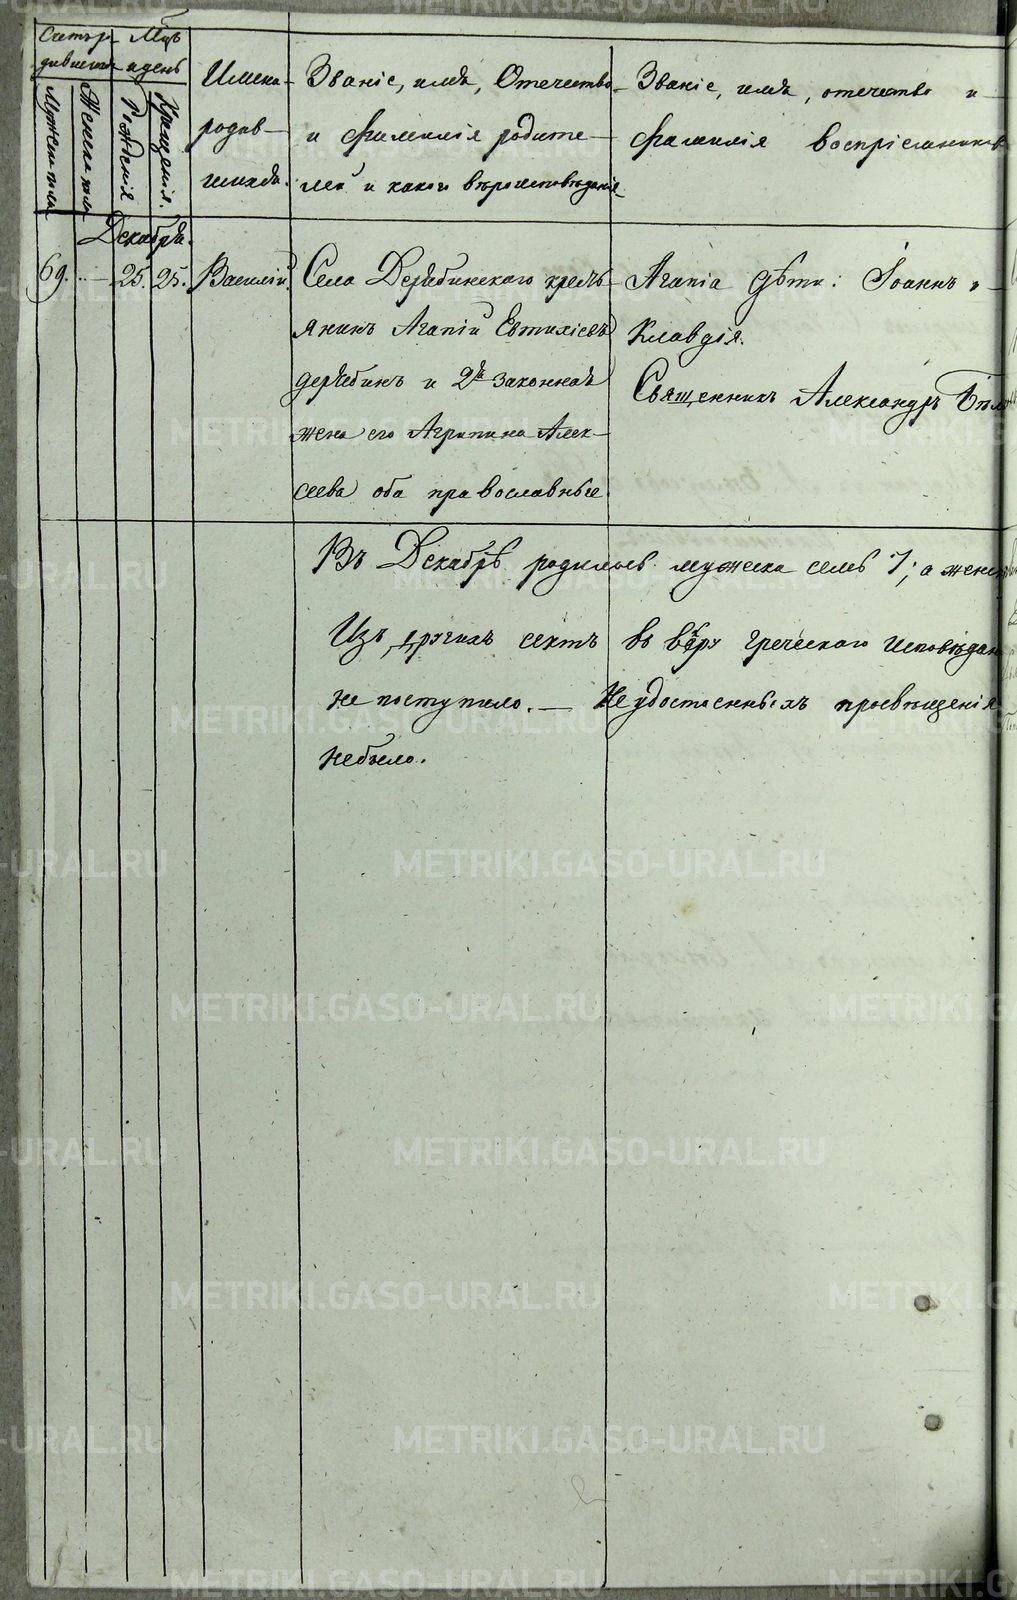 Счетъ ро- Мѣсъ
дившихъ и день
Мужеска пола
Женска пола
Рожденія
Крещенія.
Имена
родив-
шихся.
Званіе, имя, Отечество
и фамилія родите-
лей и какого вѣроисповѣданія
Званіе, имя, отечество и
фамилія воспріемниковъ
Декабрь.
69. 25. 25. Василій.
Села Дерябинскаго кресть-
янинъ Агапій Евтихіевъ
дерябинъ и 2я законная
жена его Агрипина Алек-
сеева оба православные.
Агапіа дѣти: Іоаннъ и
Клавдія.
Священникъ Александръ
Въ Декабрѣ родилось мужеска семь 7; а женс
Изъ другихъ сектъ въ вѣру греческаго исповѣдан
не поступило. — Не удостоенныхъ просвѣщенія
небыло.
METRIKI.GASO-URAL.RU